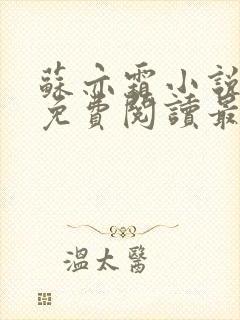 蘇亦霜小說
免費閱讀最
溫太醫